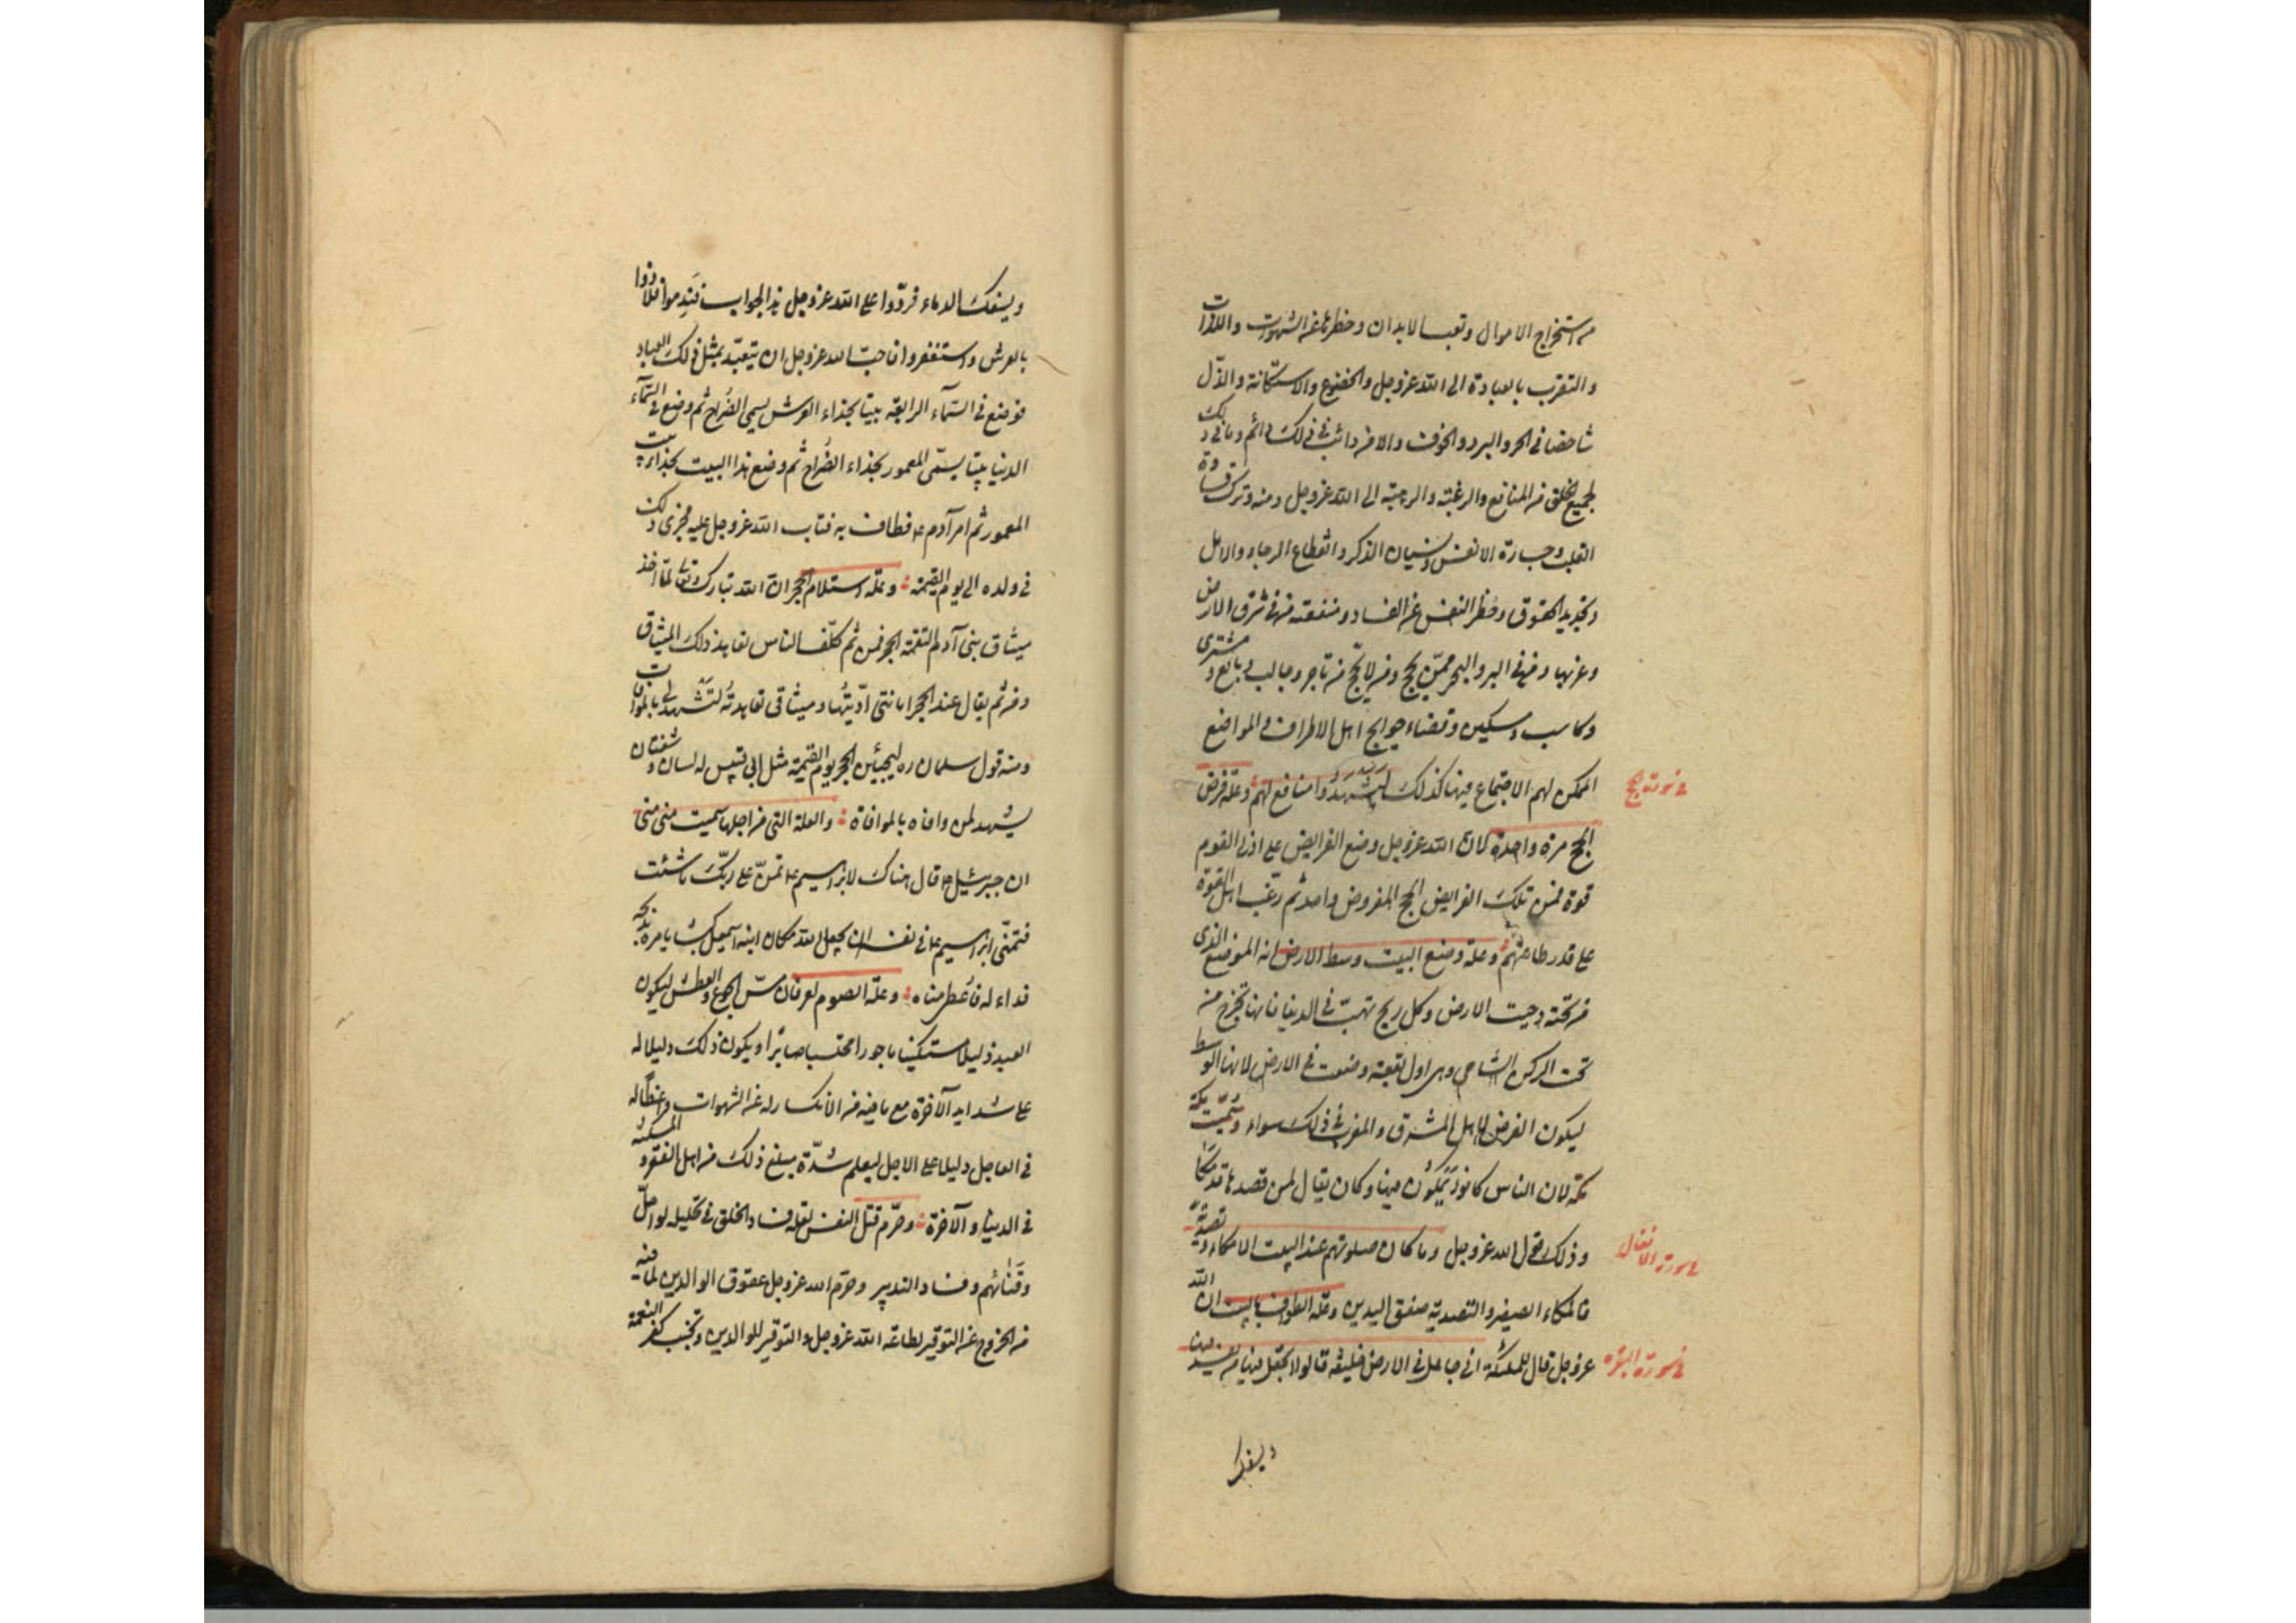 من استخراج الاموال وتعب الابدان وحظرها عن الشهوات واللذات
والتقرب بالعبادة الى الله عزوجل والخضوع والاستكانة والذل
شاخصا في الحر والبرد والخوف والامن دائب في ذلك دائم وما في ذلك
لجميع الخلق من المنافع والرغبة والرهبة الى الله عزوجل ومنه وترك قساوة
القلب وجسارة الانفس ونسيان الذكر وانقطاع الرجاء والامل
وتجديد الحقوق وحظر النفس عن الفساد ومنفعة من في شرق الارض
وغربها ومن في البر والبحر ممن يحج ومن لا يحج من تاجر وجالب وبايع ومشتري
وكاسب ومسكين وقضاء حوايج اهل الاطراف والمواضع
الممكن لهم الاجتماع فيها كذلك ليشهدوا منافع لهم وعلة فرض
في سورة الحج
الحج مرة واحدة لان الله عزوجل وضع الفرايض على ادنى القوم
قوة فمن تلك الفرايض الحج المفروض واحد ثم رغب اهل القوة
على قدر طاعتهم وعلة وضع البيت وسط الارض انه الموضع الذي
من تحته دحيت الارض وكل ريح تهب في الدنيا فانها تخرج من
تحت الركن الشامي وهي اول بقعة وضعت في الارض لانها الوسط
ليكون الفرض لاهل المشرق والمغرب في ذلك سواء وسميت مكة
مكة لان الناس كانوا يمكون فيها وكان يقال لمن قصدها قد مكا
وذلك قول الله عزوجل وما كان صلوتهم عند البيت الا مكاء وتصدية
في سورة الانفال
فالمكاء الصفير والتصدية صفق اليدين وعلة الطواف بالبيت ان الله
عزوجل قال للملئكة اني جاعل في الارض خليفة قالوا اتجعل فيها من يفسد فيها
في سورة البقره
ويسفك
ويسفك الدماء فردوا على الله عزوجل هذا الجواب فندموا فلاذوا
بالعرش واستغفروا فاحب الله عزوجل ان يتعبد بمثل ذلك العباد
فوضع في السماء الرابعة بيتا بحذاء العرش يسمى الضراح ثم وضع في السماء
الدنيا بيتا يسمى المعمور بحذاء الضراح ثم وضع هذا البيت بحذاء بيت
المعمور ثم امر آدم ع فطاف به فتاب الله عزوجل عليه فجرى ذلك
في ولده الى يوم القيمة وعلة استلام الحجر ان الله تبارك وتعالى لما اخذ
ميثاق بني آدم التقمه الحجر فمن ثم كلف الناس تعاهد ذلك الميثاق
ومن ثم يقال عند الحجر امانتي اديتها وميثاقي تعاهدته لتشهد لي بالموافات
ومنه قول سلمان ره ليجيئن الحجر يوم القيمة مثل ابي قبيس له لسان وشفتان
يشهد لمن وافاه بالموافاة والعلة التي من اجلها سميت منى منى
ان جبرئيل ع قال هناك لابراهيم ع تمن على ربك ما شئت
فتمنى ابراهيم ع في نفسه ان يجعل الله مكان ابنه اسمعيل كبشا يامره بذبحه
فداء له فاعطي مناه وعلة الصوم لعرفان مس الجوع والعطش ليكون
العبد ذليلا مستكينا ماجورا محتسبا صابرا ويكون ذلك دليلا له
على شدايد الآخرة مع ما فيه من الانكسار له عن الشهوات واعظا له
في العاجل دليلا على الاجل ليعلم شدة مبلغ ذلك من اهل الفقر والمسكنة
في الدنيا والآخرة وحرم قتل النفس لعلة فساد الخلق في تحليله لو احل
وفنائهم وفساد التدبير وحرم الله عزوجل عقوق الوالدين لما فيه
من الخروج عن التوقير لطاعة الله عزوجل والتوقير للوالدين وتجنب كفر النعمة